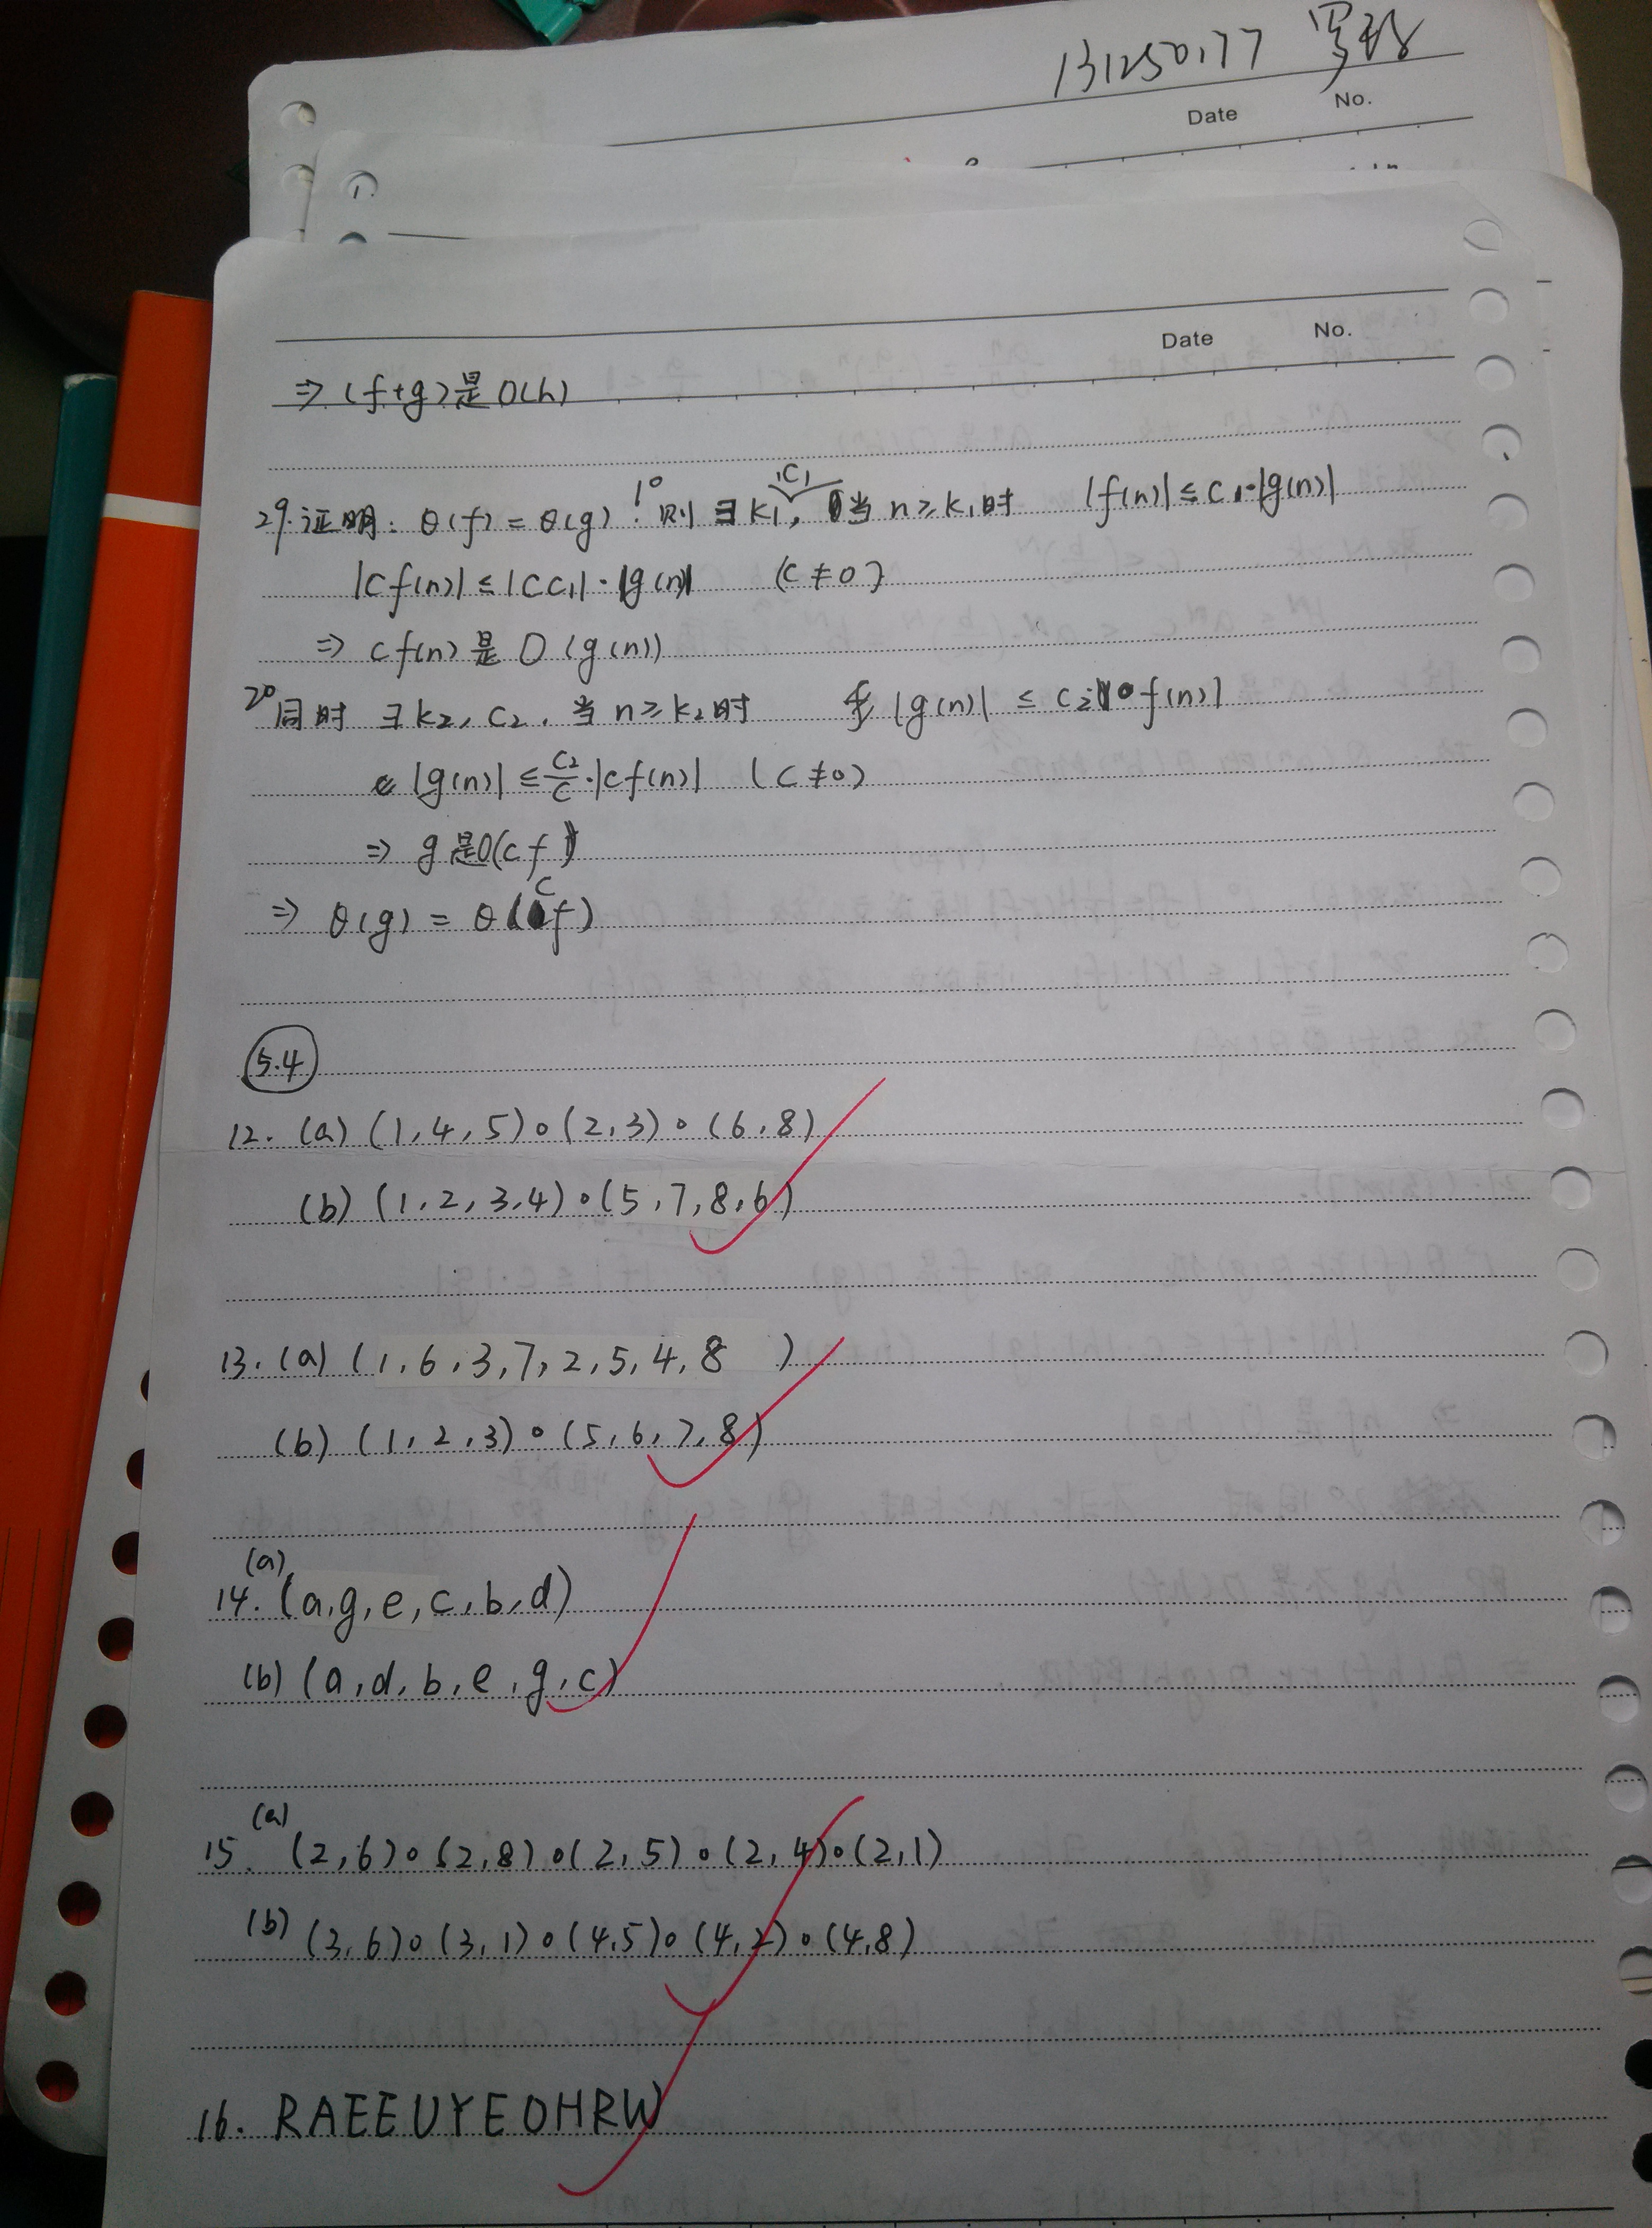 131250177
Date No.
Date No.
⇒ (f+g)是O(h)
29.证明: θ(f)=θ(g) 1° 则 ∃k₁, C₁ 当n≥k₁时 |f(n)|≤C₁·|g(n)|
|Cf(n)|≤|CC₁|·|g(n)| (C≠0)
⇒ Cf(n)是O(g(n))
2°同时 ∃k₂, C₂, 当n≥k₂时 |g(n)| ≤ C₂|f(n)|
|g(n)| ≤ C₂/C·|Cf(n)| (C≠0)
⇒ g是O(cf)
⇒ θ(g) = θ(cf)
5.4
12. (a) (1,4,5)∘(2,3)∘(6,8)
(b) (1,2,3,4)∘(5,7,8,6)
13. (a) (1,6,3,7,2,5,4,8)
(b) (1,2,3)∘(5,6,7,8)
14. (a) (a,g,e,c,b,d)
(b) (a,d,b,e,g,c)
15. (a) (2,6)∘(2,8)∘(2,5)∘(2,4)∘(2,1)
(b) (3,6)∘(3,1)∘(4,5)∘(4,2)∘(4,8)
16. RAEEUYEOHRW